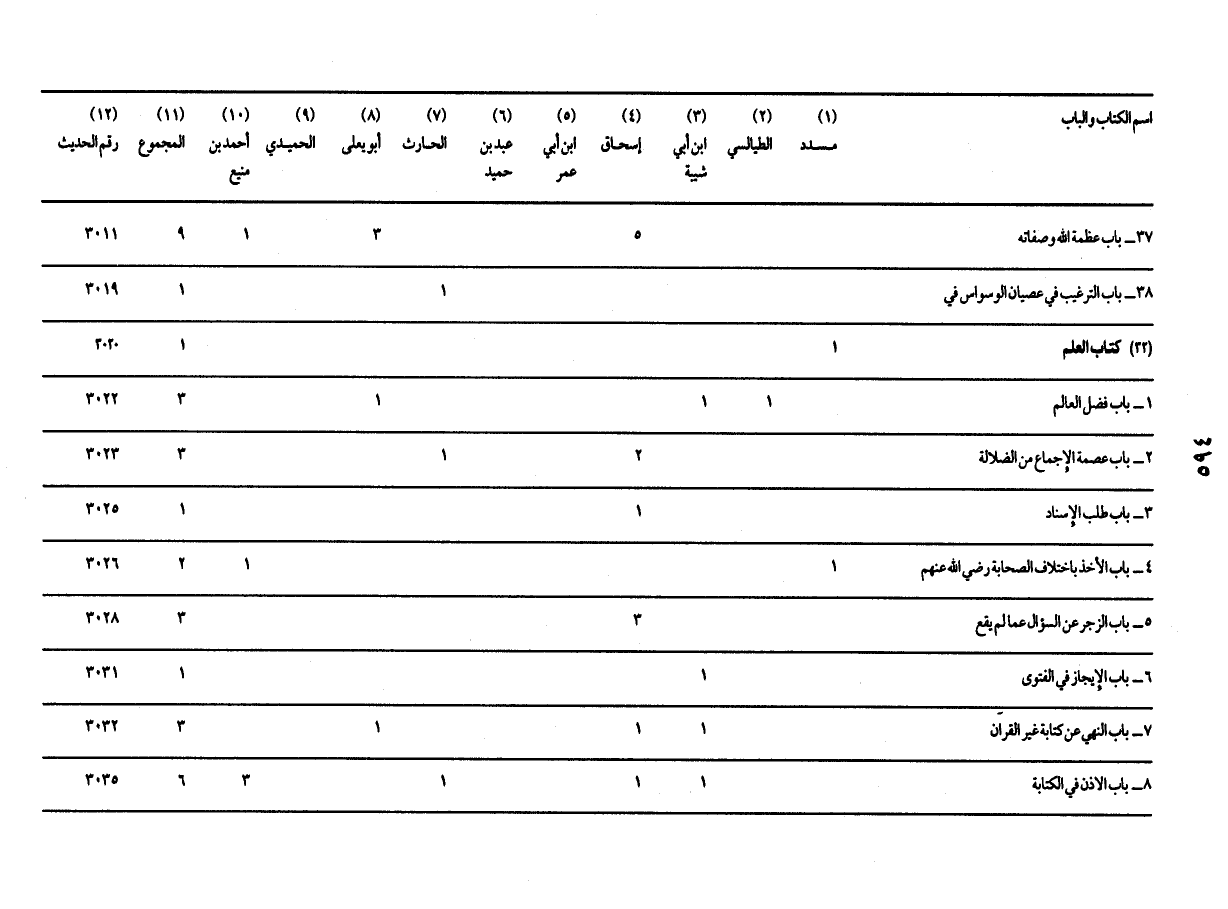 اسم الكتاب والباب (١) (٢) (٣) (٤) (٥) (٦) (٧) (٨) (٩) (١٠) (١١) (١٢)
مسدد الطيالسي ابن أبي إسحاق ابن أبي عبد بن الحارث أبو يعلى الحميدي أحمد بن المجموع رقم الحديث
شيبة عمر حميد منيع
٣٧ـ باب عظمة الله وصفاته ٥ ٣ ١ ٩ ٣٠١١
٣٨ـ باب الترغيب في عصيان الوسواس في ١ ١ ٣٠١٩
(٣٢) كتاب العلم ١ ١ ٣٠٢٠
١ـ باب فضل العالم ١ ١ ١ ٣ ٣٠٢٢
٢ـ باب عصمة الإجماع من الضلالة ٢ ١ ٣ ٣٠٢٣
٣ـ باب طلب الإسناد ١ ١ ٣٠٢٥
٤ـ باب الأخذ باختلاف الصحابة رضي الله عنهم ١ ١ ٢ ٣٠٢٦
٥ـ باب الزجر عن السؤال عما لم يقع ٣ ٣ ٣٠٢٨
٦ـ باب الإيجاز في الفتوى ١ ١ ٣٠٣١
٧ـ باب النهي عن كتابة غير القرآن ١ ١ ١ ٣ ٣٠٣٢
٨ـ باب الاذن في الكتابة ١ ١ ١ ٣ ٦ ٣٠٣٥
٥٩٤